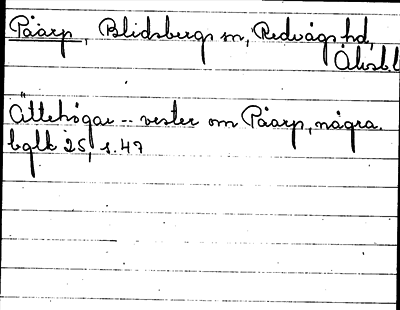 Påarp, Blidsbergs sn, Redvägs hd,
Älvsb.l
Ättehögar -- vester om Påarp, några.
bglk 25, s. 47